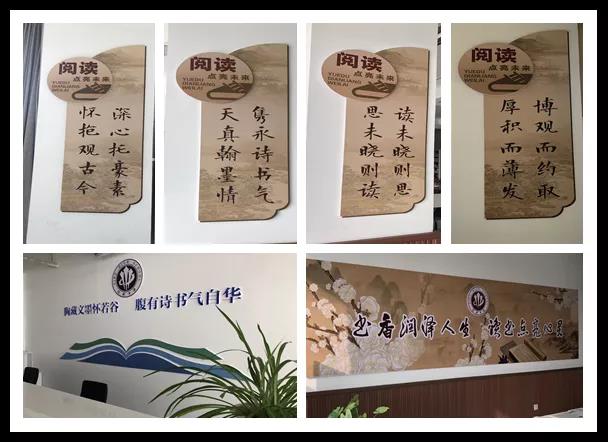 阅读
点亮未来
YUEDU
DIANLIANG
WEILAI
深心托豪素
怀抱观古今
阅读
点亮未来
YUEDU
DIANLIANG
WEILAI
隽永诗书气
天真翰墨情
阅读
点亮未来
YUEDU
DIANLIANG
WEILAI
读未晓则思
思未晓则读
阅读
点亮未来
YUEDU
DIANLIANG
WEILAI
博观而约取
厚积而薄发
胸藏文墨怀若谷 腹有诗书气自华
书香润泽人生 读书点亮心灵